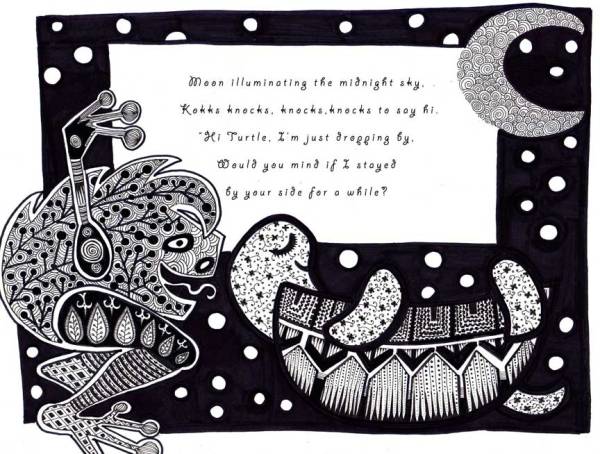 Moon illuminating the midnight sky,
Kokks knocks, knocks,knocks to say hi.
"Hi Turtle, I'm just dropping by,
Would you mind if I stayed
by your side for a while?